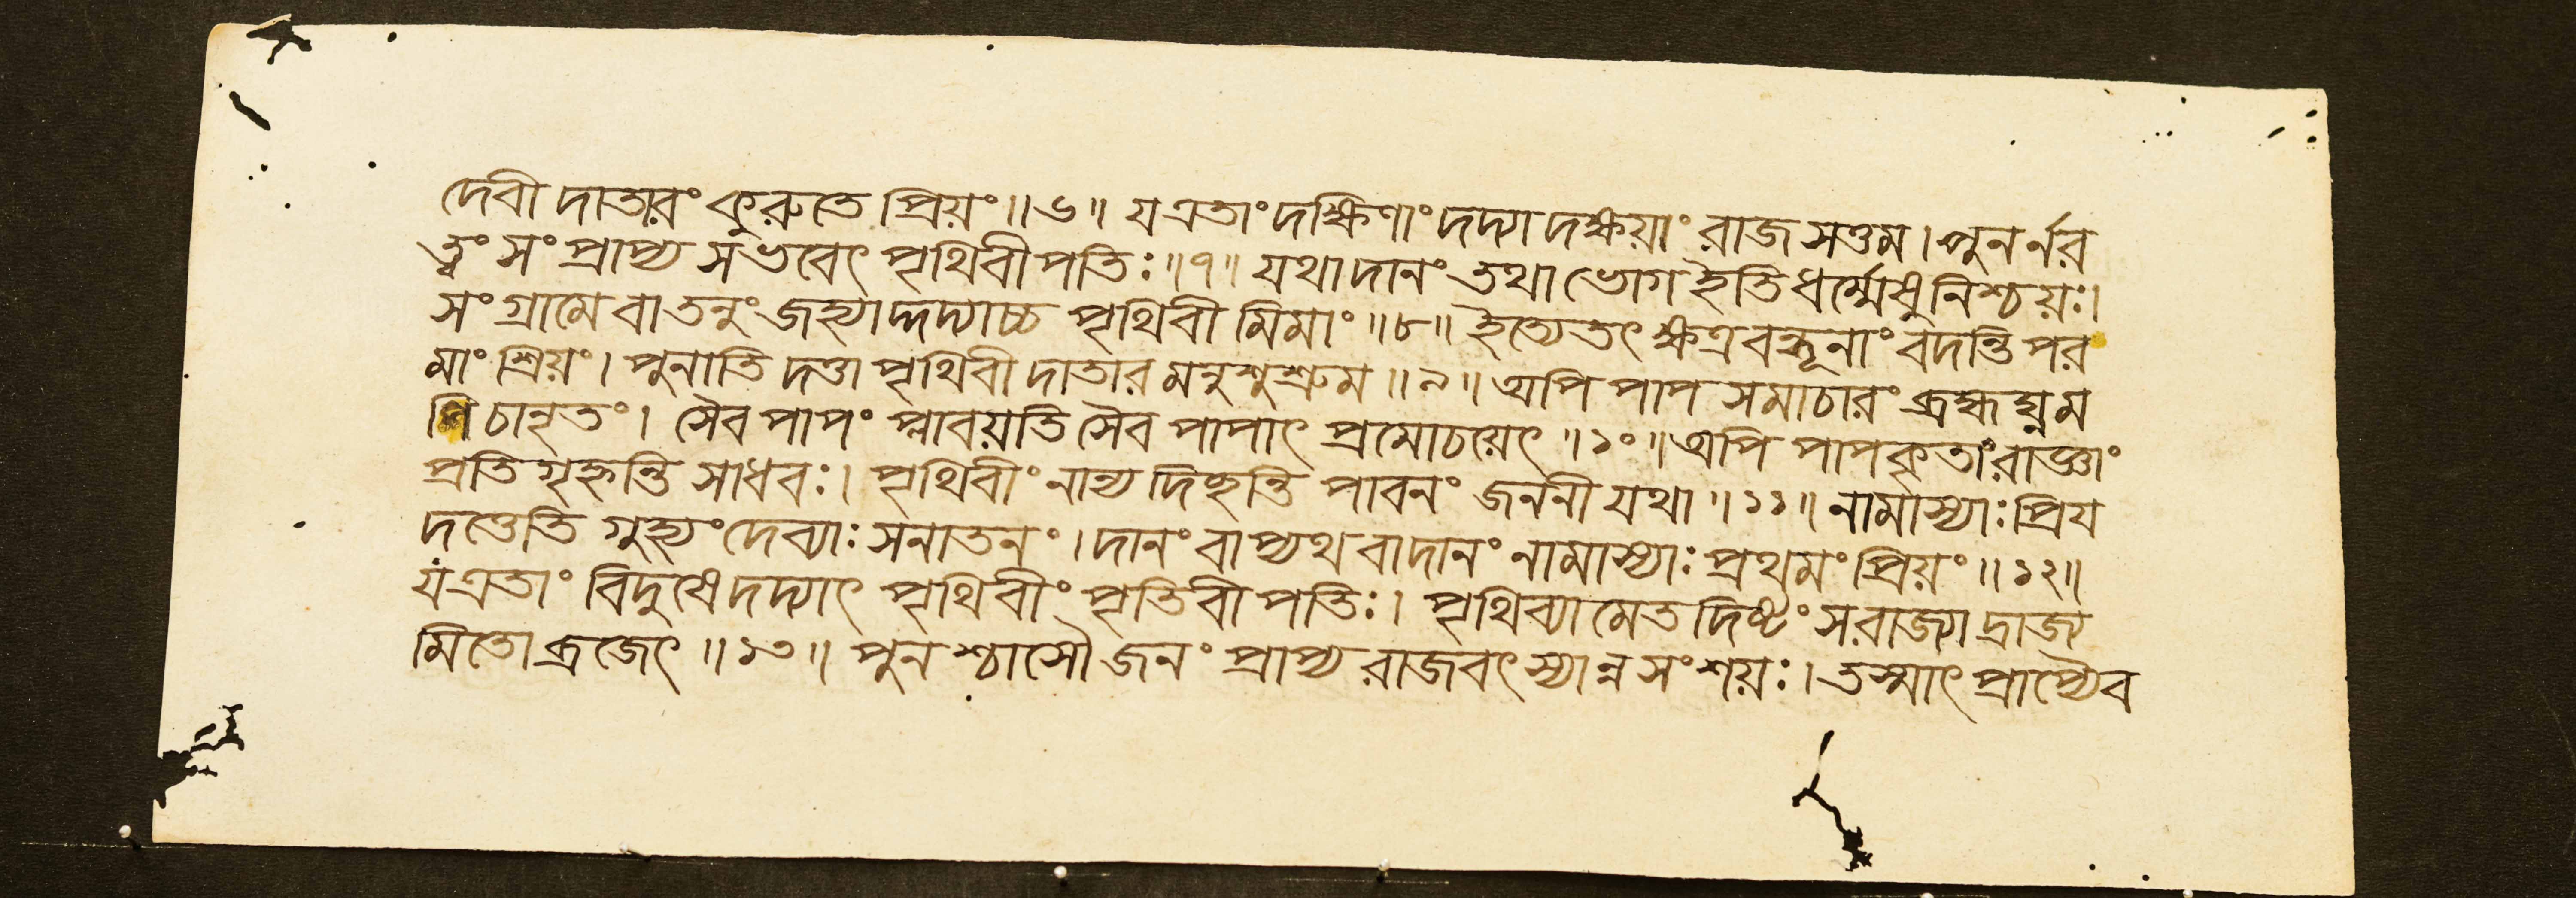 দেবী দাতারং কুরুতে প্রিয়ং ॥ ৬ ॥ য এতাং দক্ষিণাং দদ্যা দক্ষয়াং রাজ সত্তম । পুনর্নর
ত্বং সং প্রাপ্য স ভবেৎ পৃথিবী পতিঃ ॥ ৭ ॥ যথা দানং তথা ভোগ ইতি ধর্ম্মেষু নিশ্চয়ঃ ।
সংগ্রামে বা তনুং জহ্যাদ্দদ্যাচ্চ পৃথিবী মিমাং ॥ ৮ ॥ ইত্যেতৎ ক্ষত্রবন্ধূনাং বদন্তি পর
মাং শ্রিয়ং । পুনাতি দত্তা পৃথিবী দাতার মনুশুশ্রুম ॥ ৯ ॥ অপি পাপ সমাচারং ব্রহ্মঘ্নম
পি চানৃতং । সৈব পাপং প্লাবয়তি সৈব পাপাৎ প্রমোচয়েৎ ॥ ১০ ॥ অপি পাপকৃতাং রাজ্ঞাং
প্রতি গৃহ্নন্তি সাধবঃ । পৃথিবীং নান্য দিচ্ছন্তি পাবনং জননী যথা ॥ ১১ ॥ নামাস্যাঃ প্রিয
দত্তেতি গুহ্যং দেব্যাঃ সনাতনং । দানং বাপ্যথ বাদানং নামাস্যাঃ প্রথমং প্রিয়ং ॥ ১২ ॥
য এতাং বিদুষে দদ্যাৎ পৃথিবীং পৃতিবী পতিঃ । পৃথিব্যা মেত দিষ্টং স রাজ্যা দ্রাজ্য
মিতো ব্রজেৎ ॥ ১৩ ॥ পুনশ্চাসৌ জনং প্রাপ্য রাজবৎ স্যান্ন সংশয়ঃ । তস্মাৎ প্রাপ্যৈব